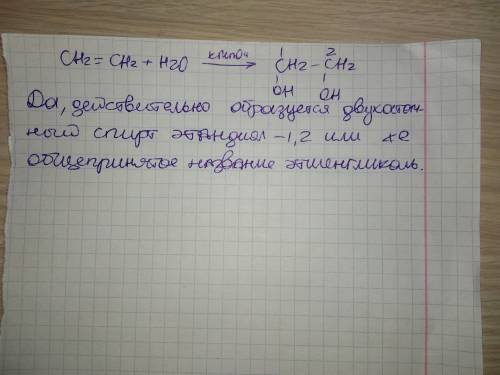 CH2 = CH2 + H2O KMnO4 → 1 CH2 – 2 CH2
OH OH
Да, действительно образуется двухатом-
ный спирт этандиол -1,2 или же
общепринятое название этиленгликоль.